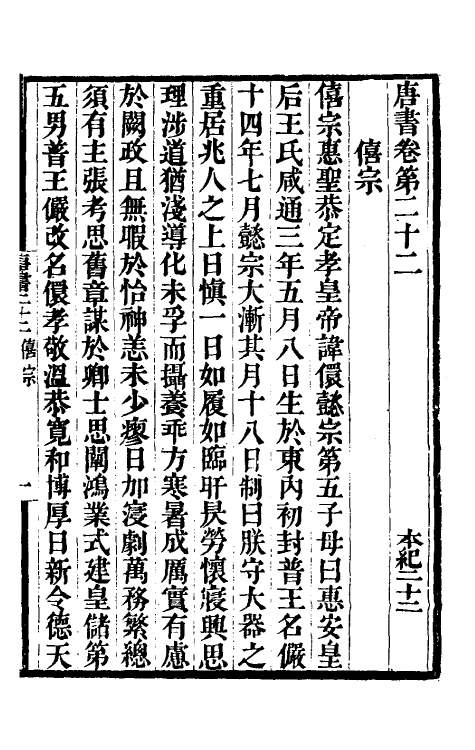 唐書卷第二十二　本紀二十二
僖宗
僖宗惠聖恭定孝皇帝諱儇懿宗第五子母曰惠安皇
后王氏咸通三年五月八日生於東內初封普王名儼
十四年七月懿宗大漸其月十八日制曰朕守大器之
重居兆人之上日慎一日如履如臨旰昃勞懷寢興思
理涉道猶淺導化未孚而攝養乖方寒暑成厲實有慮
於闕政且無暇於怡神恙未少瘳日加寖劇萬務繁總
須有主張考思舊章謀於卿士思闡鴻業式建皇儲第
五男普王儼改名儇孝敬溫恭寬和博厚日新令德天
唐書二十二 僖宗 一